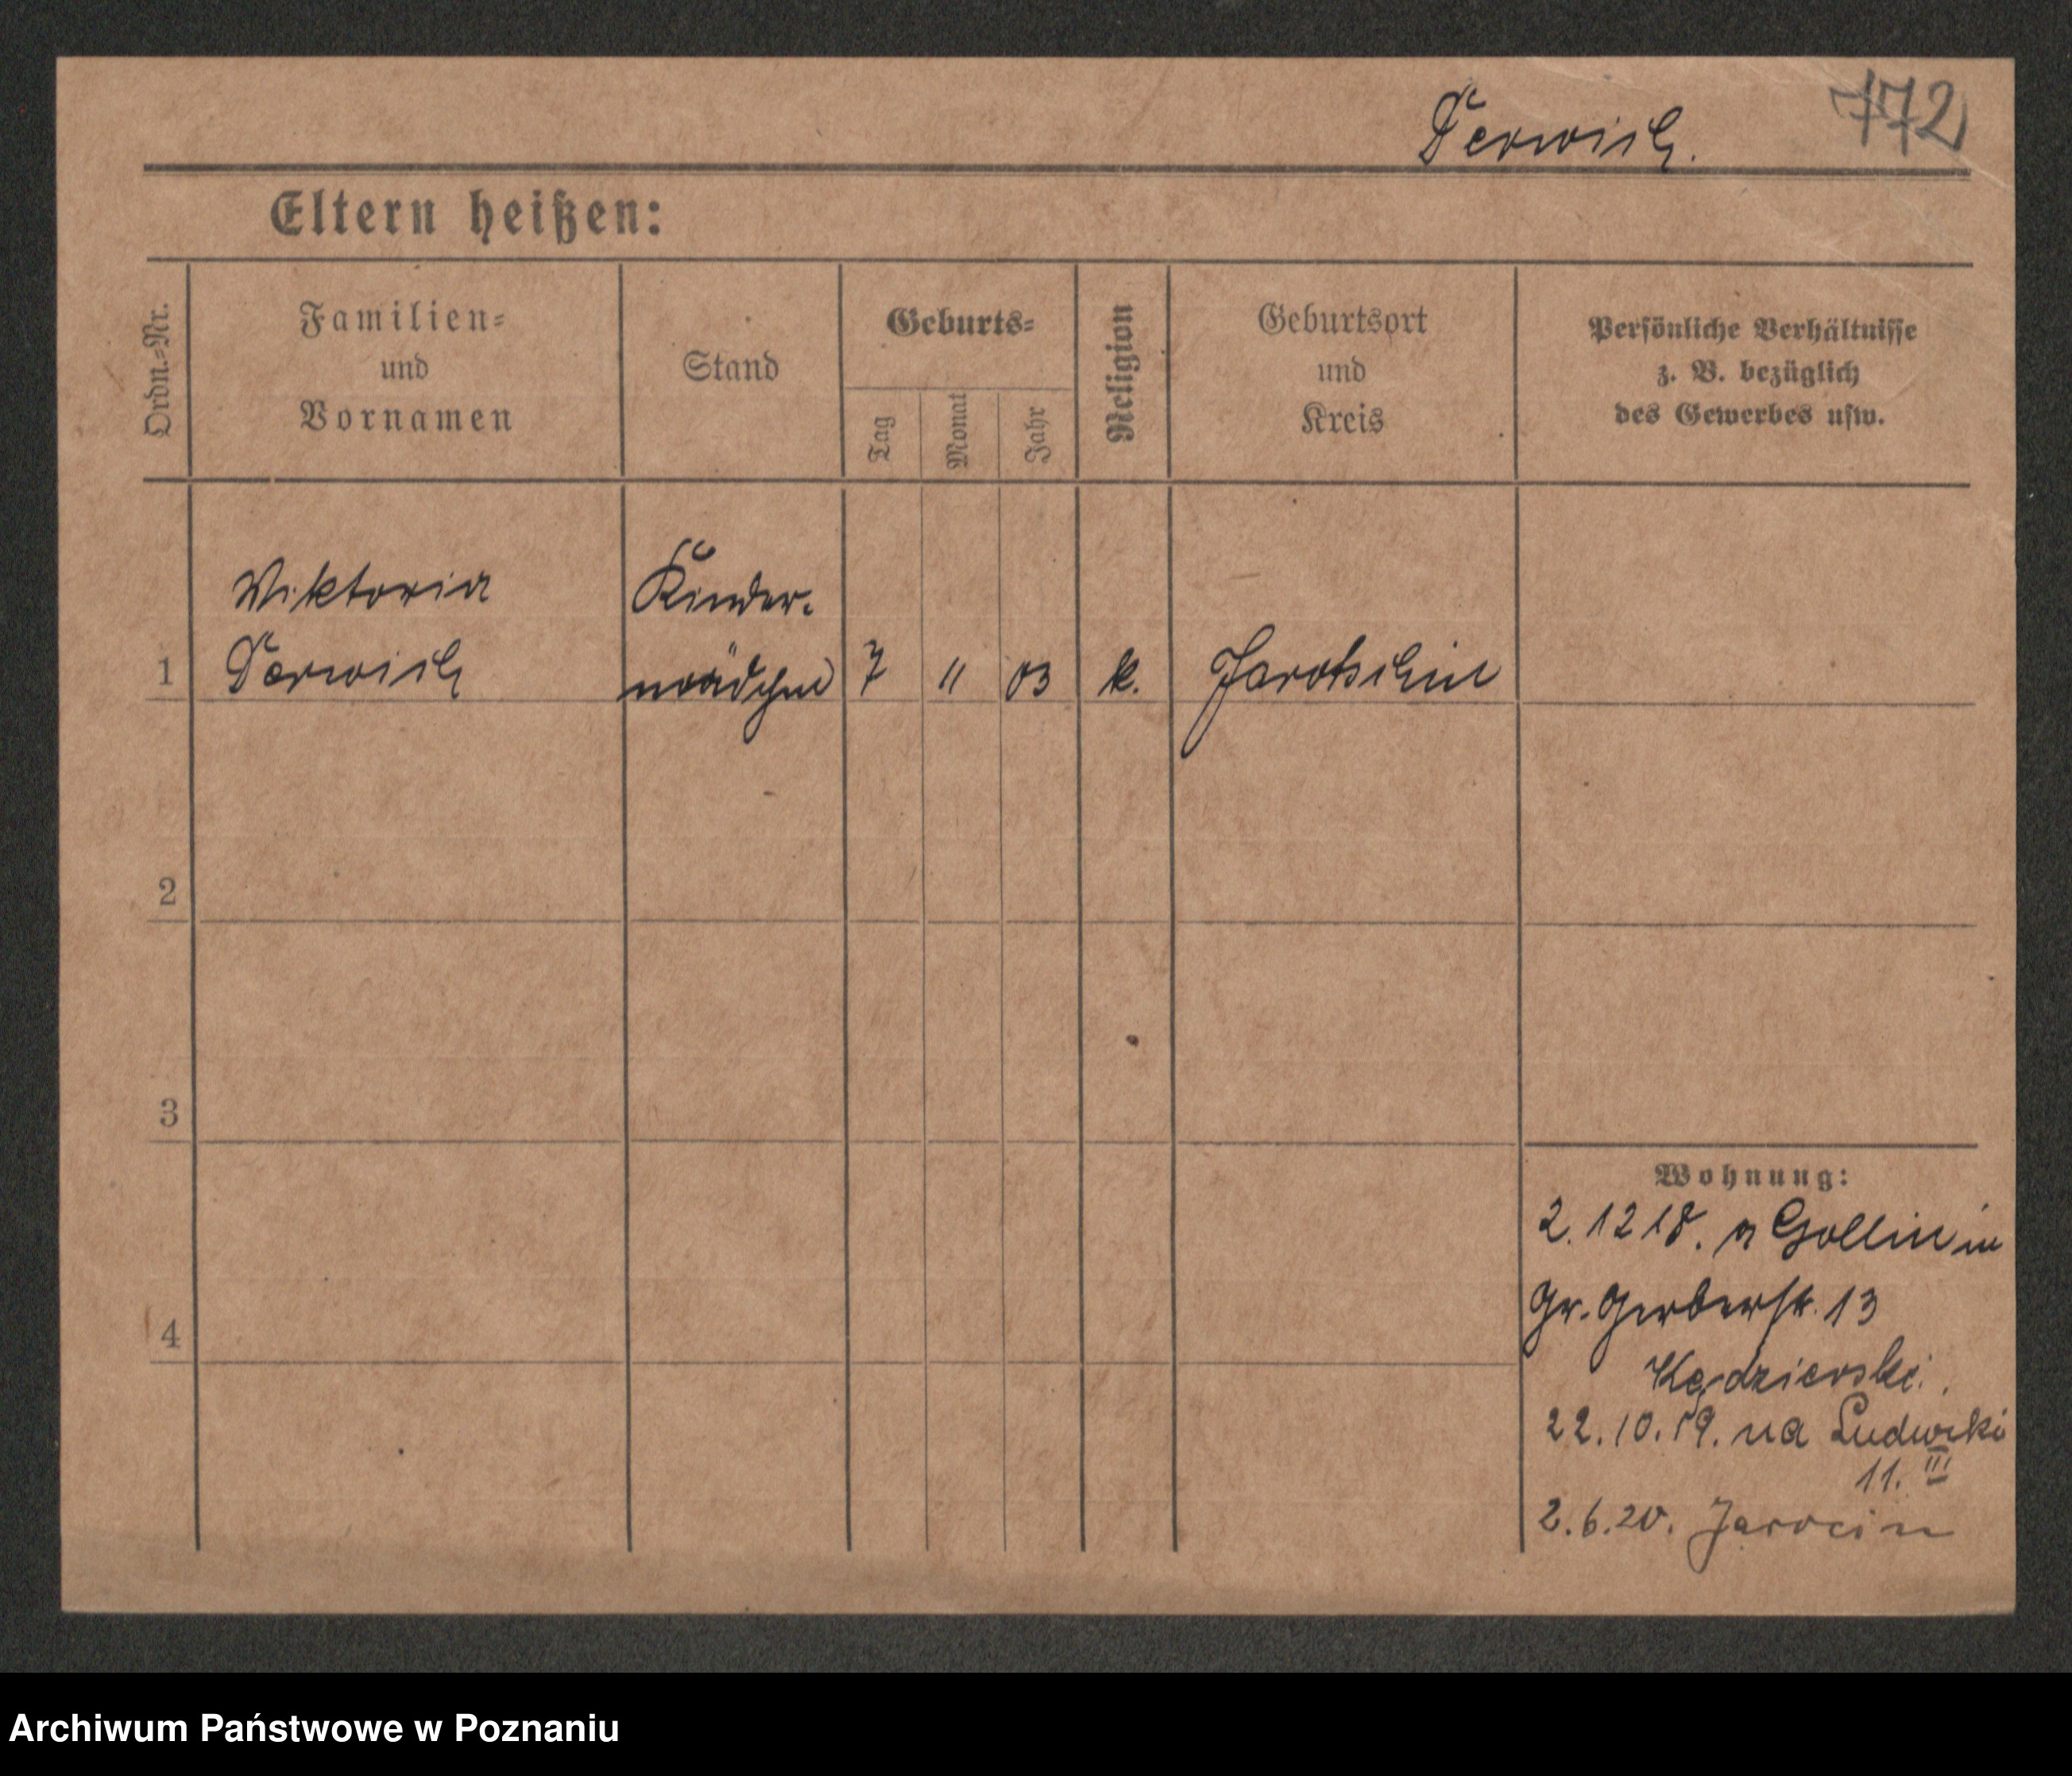 Derwich.
772
Eltern heißen:
Ordn.=Nr.
Familien=
und
Vornamen
Stand
Geburts=
Tag
Monat
Jahr
Religion
Geburtsort
und
Kreis
Persönliche Verhältnisse
z. B. bezüglich
des Gewerbes usw.
1
Wiktoria
Derwich
Kinder-
mädchen
7
11
03
k.
Jarotschin
2
3
4
Wohnung:
2. 12 18. a Gollin in
Gr. Gerberstr. 13
Kędzierski.
22. 10. 19. na Ludwiki
11. III
2. 6. 20. Jarocin
Archiwum Państwowe w Poznaniu